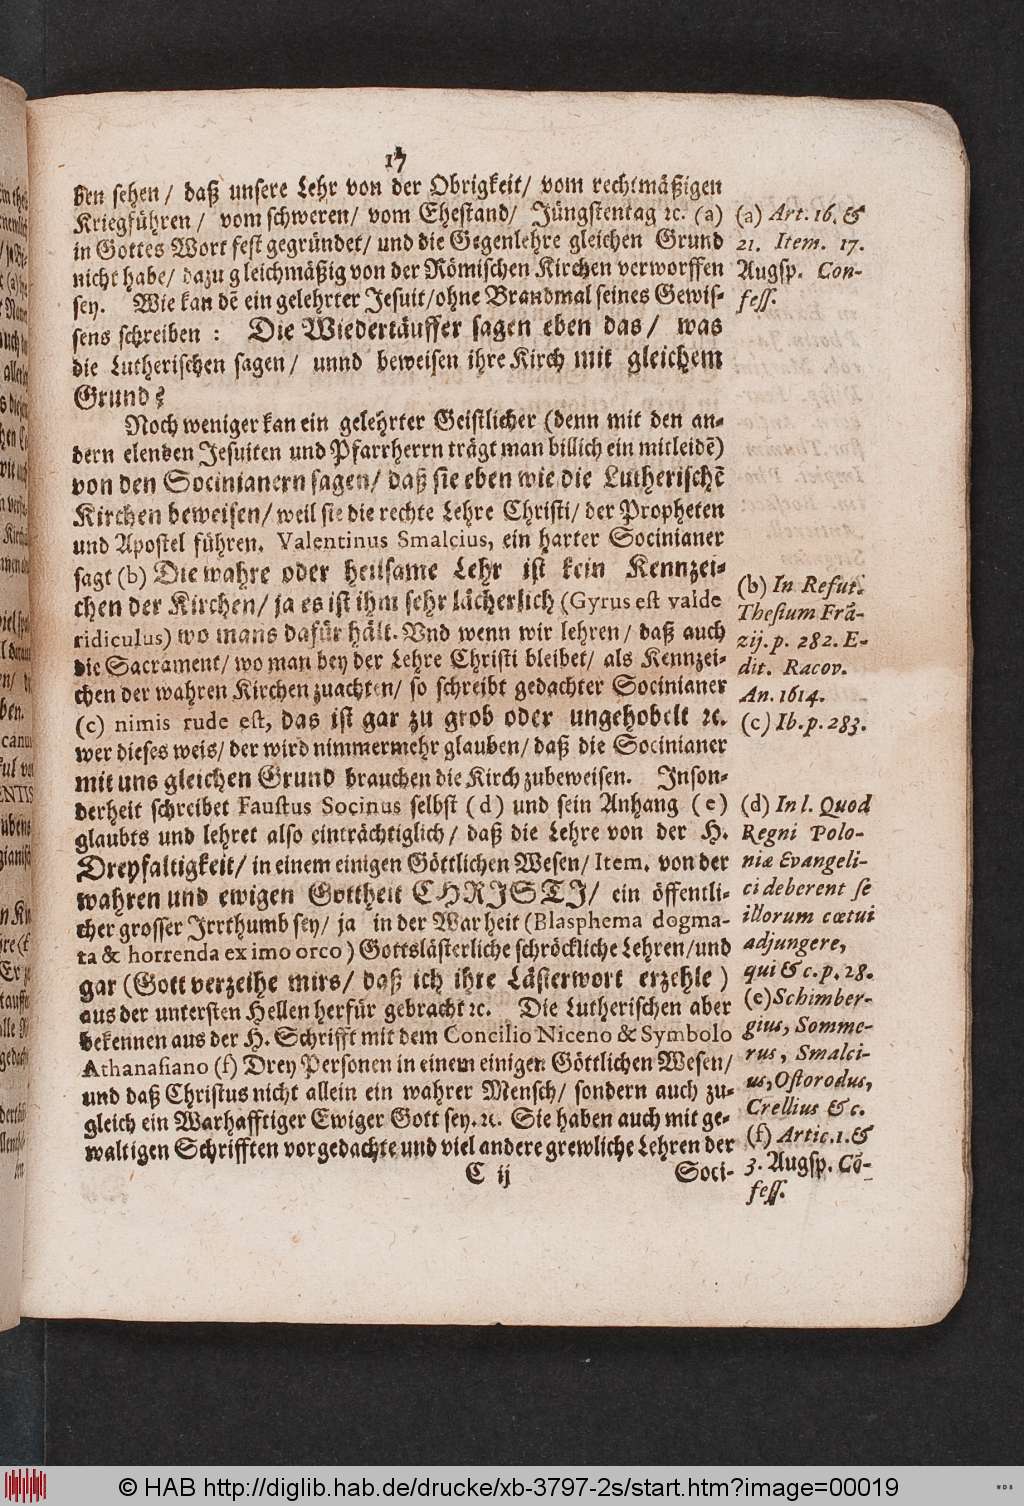 17
den sehen/ daß unsere Lehr von der Obrigkeit/ vom rechtmäßigen
Kriegführen/ vom schweren/ vom Ehestand/ Jüngstentag ꝛc. (a)
in Gottes Wort fest gegründet/ und die Gegenlehre gleichen Grund
nicht habe/ dazu gleichmäßig von der Römischen Kirchen verworffen
sey. Wie kan dẽ ein gelehrter Jesuit/ohne Brandmal seines Gewis-
sens schreiben : Die Wiedertäuffer sagen eben das/ was
die Lutherischen sagen/ unnd beweisen ihre Kirch mit gleichem
Grund?
Noch weniger kan ein gelehrter Geistlicher (denn mit den an-
dern elenden Jesuiten und Pfarrherrn trägt man billich ein mitleidẽ)
von den Socinianern sagen/ daß sie eben wie die Lutherischẽ
Kirchen beweisen/ weil sie die rechte Lehre Christi/ der Propheten
und Apostel führen. Valentinus Smalcius, ein harter Socinianer
sagt (b) Die wahre oder heilsame Lehr ist kein Kennzei-
chen der Kirchen/ ja es ist ihm sehr lächerlich (Gyrus est valde
ridiculus) wo mans dafür hält. Vnd wenn wir lehren/ daß auch
die Sacrament/ wo man bey der Lehre Christi bleibet/ als Kennzei-
chen der wahren Kirchen zuachten/ so schreibt gedachter Socinianer
(c) nimis rude est, das ist gar zu grob oder ungehobelt ꝛc.
wer dieses weis/ der wird nimmermehr glauben/ daß die Socinianer
mit uns gleichen Grund brauchen die Kirch zubeweisen. Inson-
derheit schreibet Faustus Socinus selbst (d) und sein Anhang (e)
glaubts und lehret also einträchtiglich/ daß die Lehre von der H.
Dreyfaltigkeit/ in einem einigen Göttlichen Wesen/ Item. von der
wahren und ewigen Gottheit CHRISTI/ ein öffentli-
cher grosser Irrthumb sey/ ja in der Warheit (Blasphema dogma-
ta & horrenda ex imo orco) Gottslästerliche schröckliche Lehren/und
gar (Gott verzeihe mirs/ daß ich ihre Lästerwort erzehle)
aus der untersten Hellen herfür gebracht ꝛc. Die Lutherischen aber
bekennen aus der H. Schrifft mit dem Concilio Niceno & Symbolo
Athanasiano (f) Drey Personen in einem einigen Göttlichen Wesen/
und daß Christus nicht allein ein wahrer Mensch/ sondern auch zu-
gleich ein Warhafftiger Ewiger Gott sey.ꝛc. Sie haben auch mit ge-
waltigen Schrifften vorgedachte und viel andere grewliche Lehren der
C ij
Soci-
(a) Art. 16. &
21. Item. 17.
Augsp. Con-
fess.
(b) In Refut.
Thesium Frã-
zij. p. 282. E-
dit. Racov.
An. 1614.
(c) Ib. p. 283.
(d) In l. Quod
Regni Polo-
niæ Evangeli-
ci deberent se
illorum cœtui
adjungere,
qui & c. p. 28.
(e) Schimber-
gius, Somme-
rus, Smalci-
us, Ostorodus,
Crellius & c.
(f) Artic. 1. &
3. Augsp. Cõ-
fess.
© HAB http://diglib.hab.de/drucke/xb-3797-2s/start.htm?image=00019